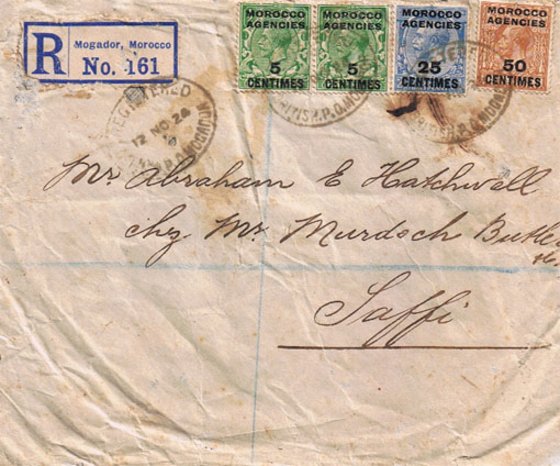 R
Mogador, Morocco
No. 161
MOROCCO AGENCIES
5 CENTIMES
MOROCCO AGENCIES
5 CENTIMES
MOROCCO AGENCIES
25 CENTIMES
MOROCCO AGENCIES
50 CENTIMES
REGISTERED
12 NO 24
BRITISH.P.O.MOGADOR
Mr. Abraham E Hatchwell
chez Mr. Murdoch Butle
Saffi